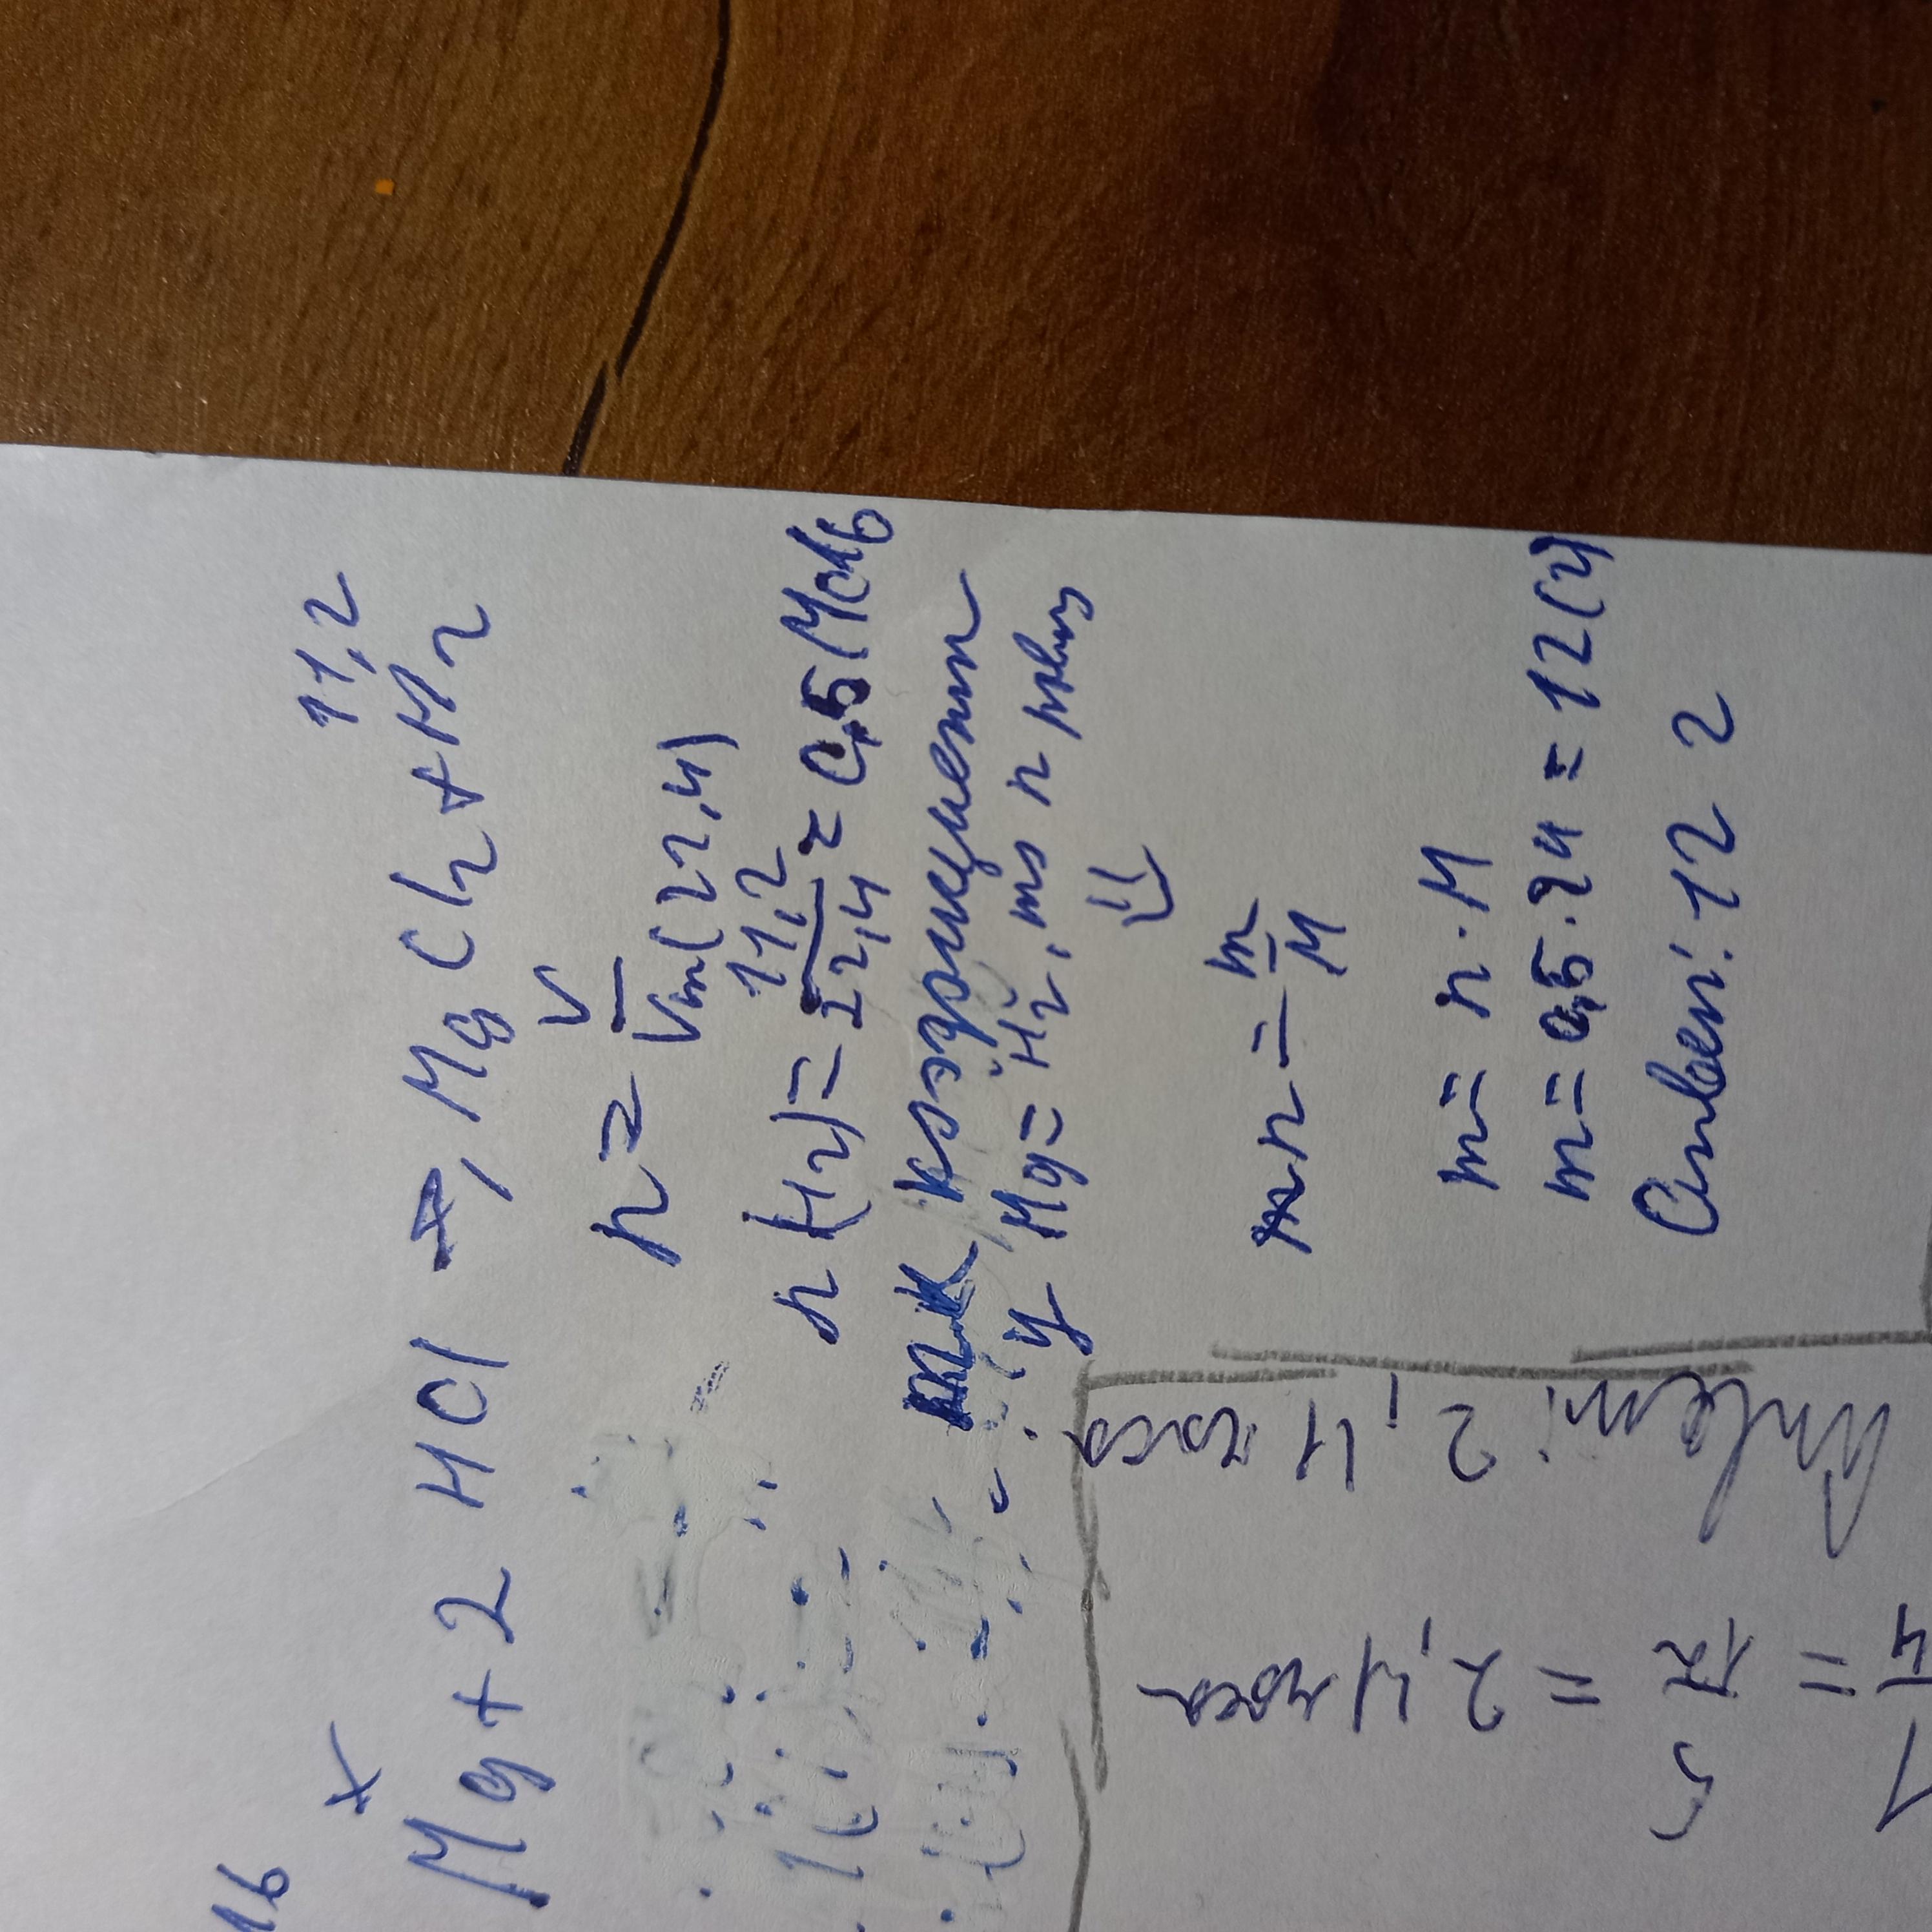 х 11,2
Mg + 2 HCl → MgCl2 + H2
n = V / Vm(22,4)
n (H2) = 11,2 / 22,4 = 0,5 моль
тк коэффициент
у Mg = H2, то n равны
⇓
n = m / M
m = n · M
m = 0,5 · 24 = 12 (г)
Ответ: 12 г
= 12 / 5 = 2,4 часа
Ответ: 2,4 часа